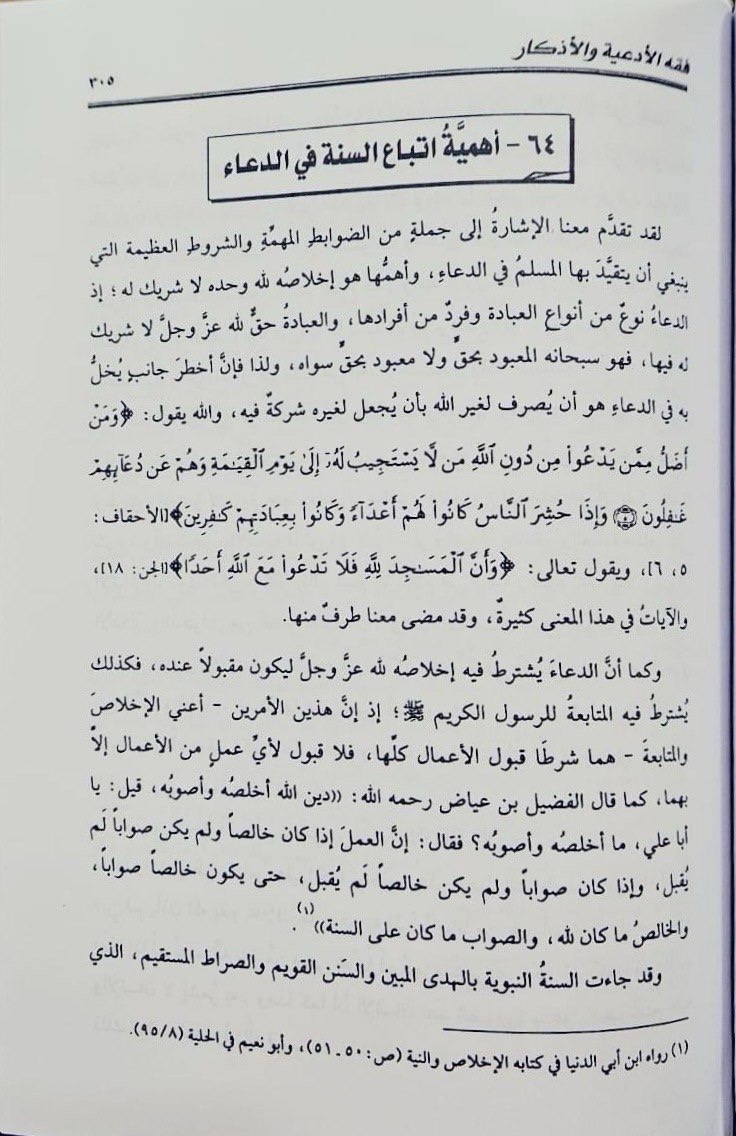 فقه الأدعية والأذكار
٣٠٥
٦٤ - أهميَّةُ اتباع السنة في الدعاء
لقد تقدَّم معنا الإشارةُ إلى جملةٍ من الضوابطِ المهمَّةِ والشروطِ العظيمة التي
ينبغي أن يتقيَّدَ بها المسلمُ في الدعاءِ، وأهمُّها هو إخلاصُه لله وحده لا شريك له؛ إذ
الدعاءُ نوعٌ من أنواع العبادة وفردٌ من أفرادها، والعبادةُ حقٌّ لله عزَّ وجلَّ لا شريك
له فيها، فهو سبحانه المعبود بحقٍّ ولا معبود بحقٍّ سواه، ولذا فإنَّ أخطرَ جانبٍ يُخلُّ
به في الدعاءِ هو أن يُصرف لغير الله بأن يُجعل لغيره شركةٌ فيه، والله يقول: ﴿وَمَنْ
أَضَلُّ مِمَّن يَدْعُواْ مِن دُونِ ٱللَّهِ مَن لَّا يَسْتَجِيبُ لَهُۥٓ إِلَىٰ يَوْمِ ٱلْقِيَٰمَةِ وَهُمْ عَن دُعَآئِهِمْ
غَٰفِلُونَ ۝٥ وَإِذَا حُشِرَ ٱلنَّاسُ كَانُواْ لَهُمْ أَعْدَآءً وَكَانُواْ بِعِبَادَتِهِمْ كَٰفِرِينَ﴾[الأحقاف:
٥، ٦]، ويقول تعالى: ﴿وَأَنَّ ٱلْمَسَٰجِدَ لِلَّهِ فَلَا تَدْعُواْ مَعَ ٱللَّهِ أَحَدًا﴾[الجن: ١٨]،
والآياتُ في هذا المعنى كثيرةٌ، وقد مضى معنا طرفٌ منها.
وكما أنَّ الدعاءَ يُشترطُ فيه إخلاصُه لله عزَّ وجلَّ ليكون مقبولاً عنده، فكذلك
يُشترطُ فيه المتابعةُ للرسول الكريم ﷺ؛ إذ إنَّ هذين الأمرين - أعني الإخلاصَ
والمتابعةَ - هما شرطَا قبول الأعمال كلِّها، فلا قبول لأيِّ عملٍ من الأعمال إلاَّ
بهما، كما قال الفضيل بن عياض رحمه الله: ((دين الله أخلصُه وأصوبُه، قيل: يا
أبا علي، ما أخلصُه وأصوبُه؟ فقال: إنَّ العملَ إذا كان خالصاً ولم يكن صواباً لَم
يُقبل، وإذا كان صواباً ولم يكن خالصاً لَم يُقبل، حتى يكون خالصاً صواباً،
والخالصُ ما كان لله، والصواب ما كان على السنة))(١).
وقد جاءت السنةُ النبوية بالهدى المبين والسَنن القويم والصراط المستقيم، الذي
(١) رواه ابن أبي الدنيا في كتابه الإخلاص والنية (ص: ٥٠ ـ ٥١)، وأبو نعيم في الحلية (٩٥/٨).